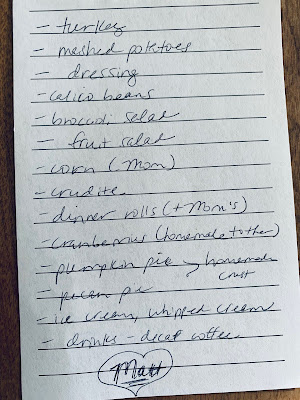 - turkey
- mashed potatoes
- dressing
- calico beans
- broccoli salad
- fruit salad
- corn (Mom)
- crudite
- dinner rolls (+ Mom's)
- cranberries (homemade + other)
- pumpkin pie > homemade crust
- pecan pie
- ice cream, whipped cream
- drinks - decaf coffee
Matt